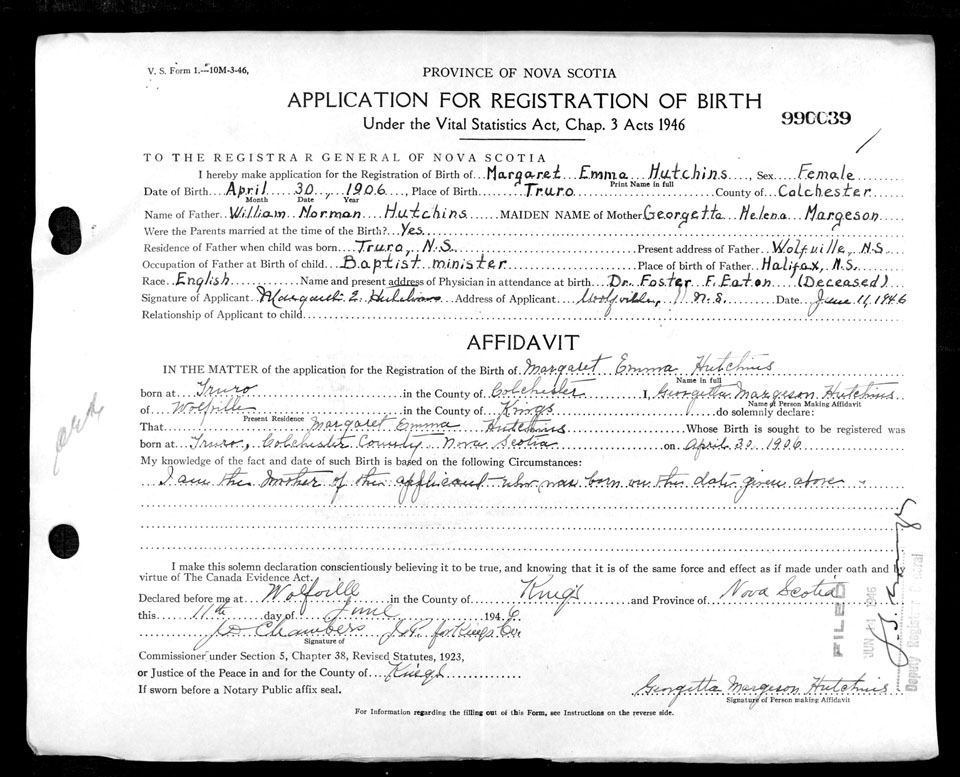 V. S. Form 1.—10M-3-46,
PROVINCE OF NOVA SCOTIA
APPLICATION FOR REGISTRATION OF BIRTH
Under the Vital Statistics Act, Chap. 3 Acts 1946
990039
TO THE REGISTRAR GENERAL OF NOVA SCOTIA
I hereby make application for the Registration of Birth of Margaret Emma Hutchins, Sex Female
Print Name in full
Date of Birth April 30, 1906, Place of Birth Truro County of Colchester
Month Date Year
Name of Father William Norman Hutchins MAIDEN NAME of Mother Georgetta Helena Margeson
Were the Parents married at the time of the Birth? Yes
Residence of Father when child was born Truro, N.S. Present address of Father Wolfville, N.S
Occupation of Father at Birth of child Baptist minister Place of birth of Father Halifax, N.S.
Race English Name and present address of Physician in attendance at birth Dr. Foster F. Eaton (Deceased)
Signature of Applicant Margaret E. Hutchins Address of Applicant Wolfville, N.S. Date June 11, 1946
Relationship of Applicant to child
AFFIDAVIT
IN THE MATTER of the application for the Registration of the Birth of Margaret Emma Hutchins
Name in full
born at Truro in the County of Colchester I, Georgetta Margeson Hutchins
Name of Person Making Affidavit
of Wolfville in the County of Kings do solemnly declare:
Present Residence
That Margaret Emma Hutchins Whose Birth is sought to be registered was
born at Truro, Colchester County, Nova Scotia on April 30 1906
My knowledge of the fact and date of such Birth is based on the following Circumstances:
I am the mother of the applicant who was born on the date given above
I make this solemn declaration conscientiously believing it to be true, and knowing that it is of the same force and effect as if made under oath and by
virtue of The Canada Evidence Act.
Declared before me at Wolfville in the County of Kings and Province of Nova Scotia
this 11th day of June 1946
J D Chambers J.P. for Kings Co
Signature of
Commissioner under Section 5, Chapter 38, Revised Statutes, 1923,
or Justice of the Peace in and for the County of Kings
If sworn before a Notary Public affix seal.
Georgetta Margeson Hutchins
Signature of Person making Affidavit
For Information regarding the filling out of this Form, see Instructions on the reverse side.
FILED
JUN 1946
Deputy Registrar General